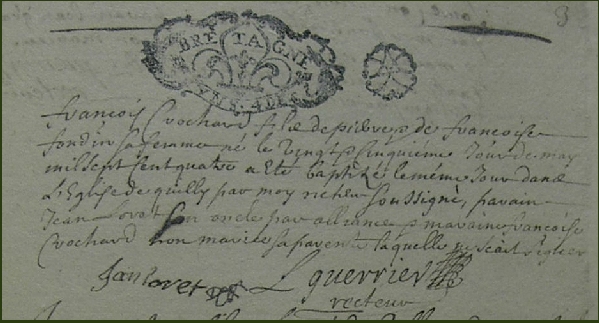 3
BRETAGNE
françois Crochard fils de pierre & de françoise
fondin sa femme né le vingt & cinquiéme Jour de may
mil sept cent quatre a Eté baptizé le meme Jour dans
L'Eglise de quilly par moy soussigné, parain
Jean son oncle par alliance & maraine françoise
Crochard non mariée sa parente laquelle ne scait signer
Jan Loret L guerrier
recteur